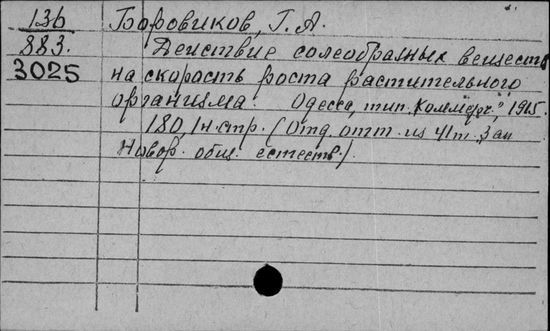 136 Боровиков, Г. А.
883. Действие солеобразных веществ
3025 на скорость роста растительного
организма. Одесса, тип. "Коммерч.", 1915.
180, 1 н. стр. (Отд. отт. из 41 т. Зап.
Новор. общ. естеств.).